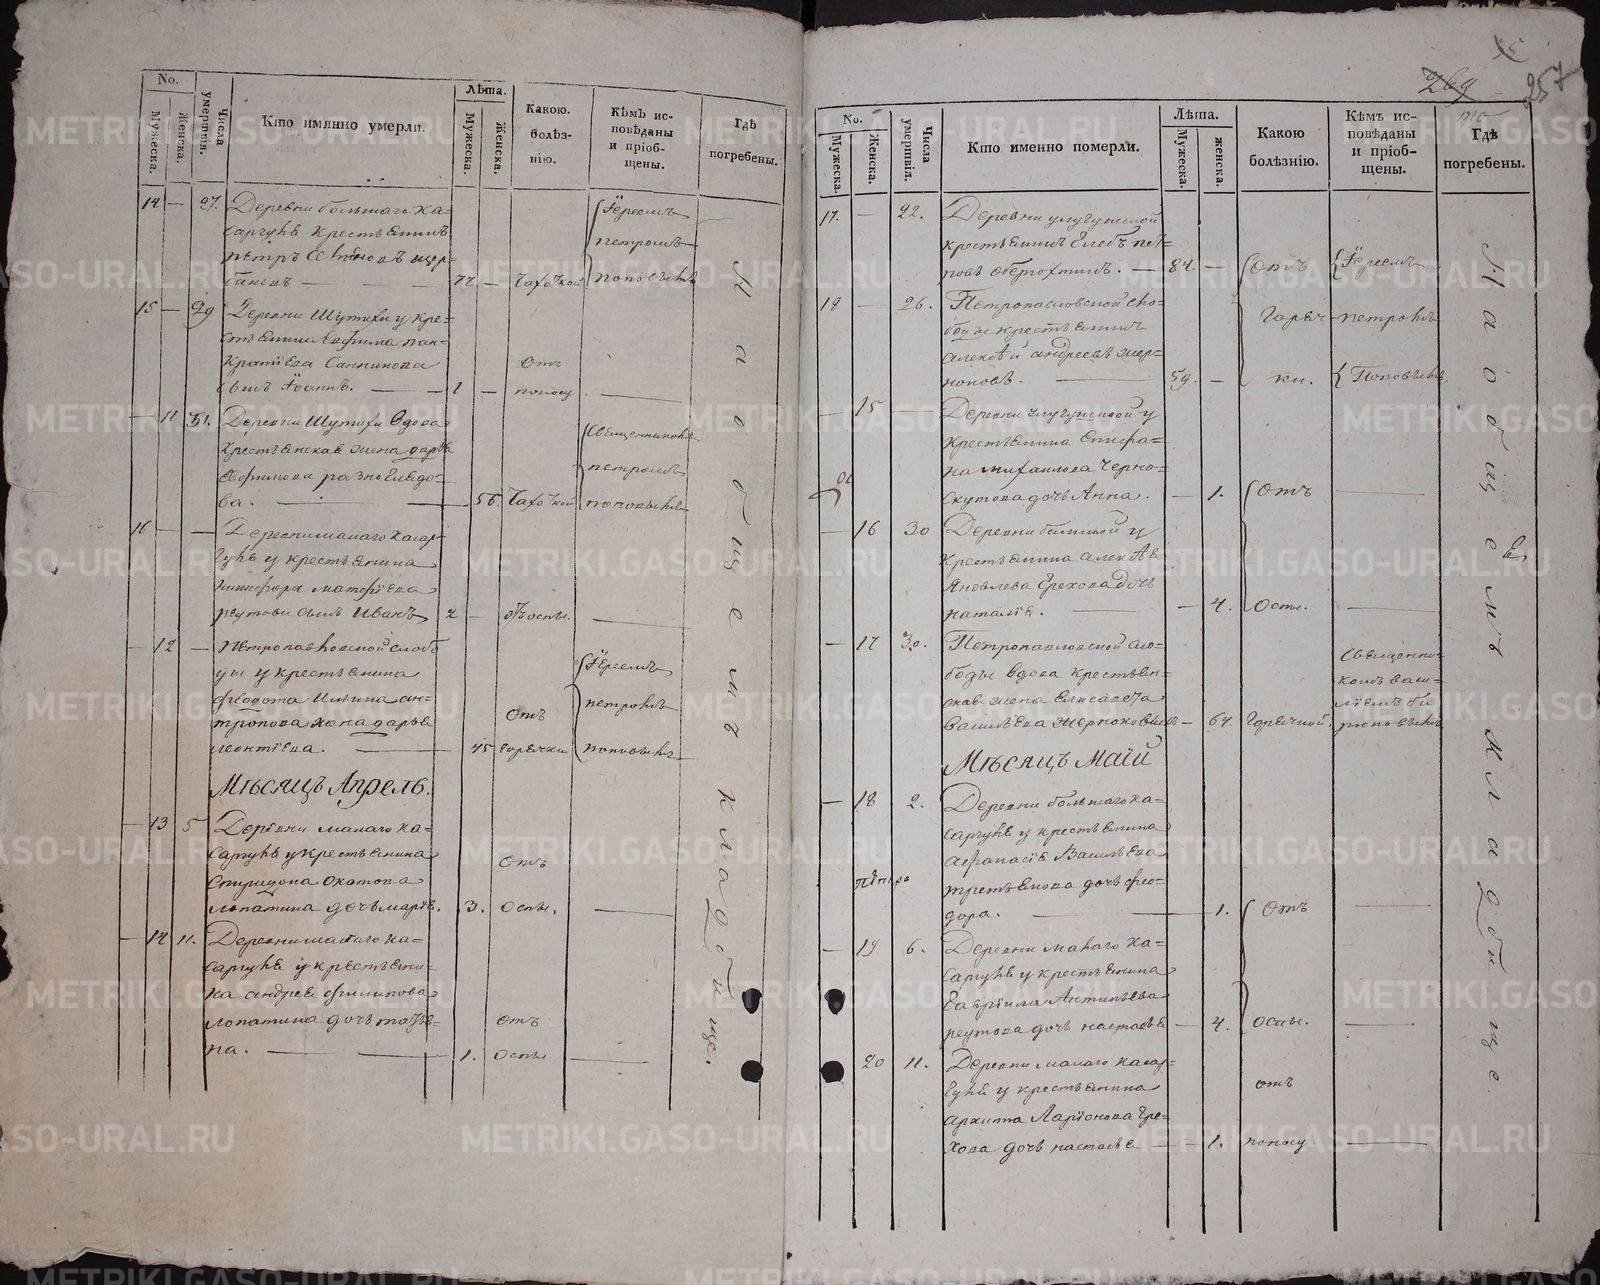 No.
Мужеска.
Женска.
Числа умертвія.
Кто имянно умерли.
Лѣта.
Мужеска.
Женска.
Какою.
болѣз-
нію.
Кѣмъ ис-
повѣданы
и пріоб-
щены.
Гдѣ
погребены.
14 — 27. Деревни большаго ка=
саргуля крестьянинъ
петръ
77 — Чахоткой
Іереемъ
петромъ
поповымъ
15 — 29 Деревни Шутихи у кре=
стьянина Ефима пан=
кратіева Санникова
сынъ Іоаннъ. — 1 —
отъ
поносу
— 11 31. Деревни Шутихи вдова
крестьянская жена дарья
Ефимова
ва. — 56. Чахоткой
Священникомъ
петромъ
поповымъ
16 — — Деревни малаго касар=
гуля у крестьянина
никифора матфіева
реутова сынъ Иванъ 2 — отъ оспы.
— 12 — Петропавловской слобо
ды у крестьянина
феодота Ильина ан=
тропова жена дарья
леонтіева. — 45
отъ
горячки
Іереемъ
петромъ
поповымъ
Мѣсяцъ Апрель.
— 13 5 Деревни малаго ка=
саргуля у крестьянина
Спиридона
лопатина дочь марія. 3.
отъ
оспы.
— 14 11. Деревни малаго ка=
саргуля у крестьяни=
на андрея филипова
лопатина дочь татья=
на. — 1.
отъ
оспы
На общемъ кладбище.
269
257
No.
Мужеска.
Женска.
Числа умертвія.
Кто именно померли.
Лѣта.
Мужеска.
женска.
Какою
болѣзнію.
Кѣмъ ис-
повѣданы
и пріоб-
щены.
Гдѣ
погребены.
17. — 22. Деревни
крестьянинъ Глебъ пет=
ровъ — 84. —
отъ
Іереемъ
18 — 26. Петропавловской сло=
боды крестьянинъ
алексѣй андреевъ жер=
ноковъ. — 59. —
горяч
ки.
петромъ
Поповымъ
— 15 Деревни у
крестьянина Епифа=
на михаилова Черно=
скутова дочь Анна. — 1. отъ
— 16 30 Деревни у
крестьянина алексѣя
Яковлева Грехова дочь
наталія. — 4. оспы.
— 17 30. Петропавловской сло=
боды вдова крестьян=
ская жена Елисавета
Васильева Жерноковыхъ — 67. горячкой.
Священни
комъ
Мѣсяцъ Маій
— 18 2. Деревни большаго ка=
саргуля у крестьянина
афанасія Васильева
третьякова дочь фео=
дора. — 1. отъ
— 19 6. Деревни малаго ка=
саргуля у крестьянина
Гавріила Антипьева
реутова дочь настасья — 4. оспы.
20 11. Деревни малаго касар=
гуля у крестьянина
архипа Ларіонова Гре=
хова дочь настасья — 1.
отъ
поносу.
На общемъ кладбище